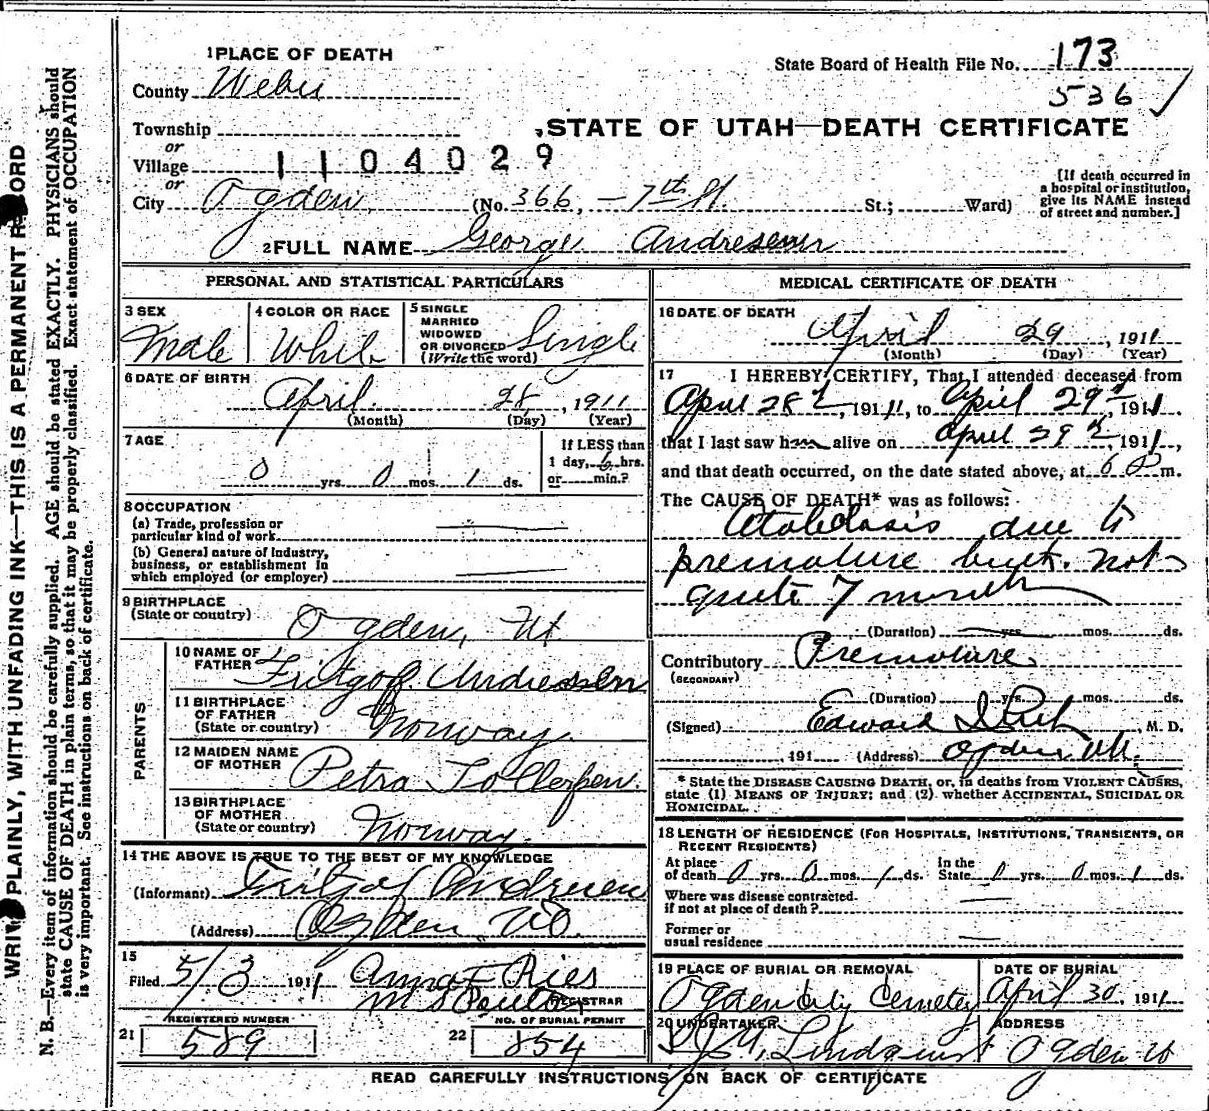 WRITE PLAINLY, WITH UNFADING INK—THIS IS A PERMANENT RECORD
N. B.—Every item of information should be carefully supplied. AGE should be stated EXACTLY. PHYSICIANS should
state CAUSE OF DEATH in plain terms, so that it may be properly classified. Exact statement of OCCUPATION
is very important. See instructions on back of certificate.
1 PLACE OF DEATH
County Weber
Township
or
Village
1104029
or
City Ogden (No. 366, - 7th St. St.; Ward)
State Board of Health File No. 173
536
STATE OF UTAH—DEATH CERTIFICATE
[If death occurred in
a hospital or institution,
give its NAME instead
of street and number.]
2 FULL NAME George Andresen
PERSONAL AND STATISTICAL PARTICULARS
3 SEX
Male
4 COLOR OR RACE
White
5 SINGLE
MARRIED
WIDOWED
OR DIVORCED
(Write the word)
Single
6 DATE OF BIRTH
April 28, 1911
(Month) (Day) (Year)
7 AGE
0 yrs. 0 mos. 1 ds.
If LESS than
1 day, hrs.
or min.?
8 OCCUPATION
(a) Trade, profession or
particular kind of work
(b) General nature of industry,
business, or establishment in
which employed (or employer)
9 BIRTHPLACE
(State or country)
Ogden, Ut.
PARENTS
10 NAME OF
FATHER Andresen
11 BIRTHPLACE
OF FATHER
(State or country) Norway.
12 MAIDEN NAME
OF MOTHER Petra Tollefsen.
13 BIRTHPLACE
OF MOTHER
(State or country) Norway.
14 THE ABOVE IS TRUE TO THE BEST OF MY KNOWLEDGE
(Informant) Andresen
(Address) Ogden
15
Filed 5/3 1911 Anna F Ries
REGISTRAR
REGISTERED NUMBER
21 589
NO. OF BURIAL PERMIT
22 854
MEDICAL CERTIFICATE OF DEATH
16 DATE OF DEATH
April 29, 1911
(Month) (Day) (Year)
17 I HEREBY CERTIFY, That I attended deceased from
April 28, 1911, to April 29, 1911.
that I last saw him alive on April 29, 1911,
and that death occurred, on the date stated above, at 6 m.
The CAUSE OF DEATH* was as follows:
Atalectasis due to
premature birth. not
quite 7 month
(Duration) yrs. mos. ds.
Contributory Premature
(SECONDARY)
(Duration) yrs. mos. ds.
(Signed) Edward M. D.
, 191 (Address) Ogden
* State the DISEASE CAUSING DEATH, or, in deaths from VIOLENT CAUSES,
state (1) MEANS OF INJURY; and (2) whether ACCIDENTAL, SUICIDAL OR
HOMICIDAL.
18 LENGTH OF RESIDENCE (FOR HOSPITALS, INSTITUTIONS, TRANSIENTS, OR
RECENT RESIDENTS)
At place
of death 0 yrs. 0 mos. 1 ds.
In the
State 0 yrs. 0 mos. 1 ds.
Where was disease contracted
if not at place of death?
Former or
usual residence
19 PLACE OF BURIAL OR REMOVAL
Ogden City Cemetery
DATE OF BURIAL
April 30, 1911
20 UNDERTAKER
Lindquist
ADDRESS
Ogden
READ CAREFULLY INSTRUCTIONS ON BACK OF CERTIFICATE